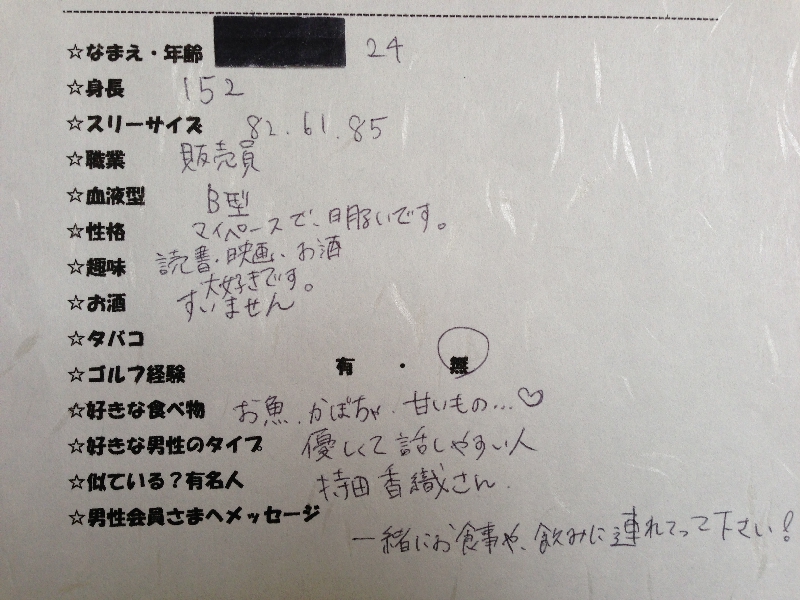 ☆なまえ・年齢 24
☆身長 152
☆スリーサイズ 82.61.85
☆職業 販売員
☆血液型 B型
☆性格 マイペースで、明るいです。
☆趣味 読書、映画、お酒
☆お酒 大好きです。
☆タバコ すいません
☆ゴルフ経験 有・無
☆好きな食べ物 お魚、かぼちゃ、甘いもの…♡
☆好きな男性のタイプ 優しくて話しやすい人
☆似ている?有名人 持田香織さん.
☆男性会員さまへメッセージ
一緒にお食事や、飲みに連れてって下さい!